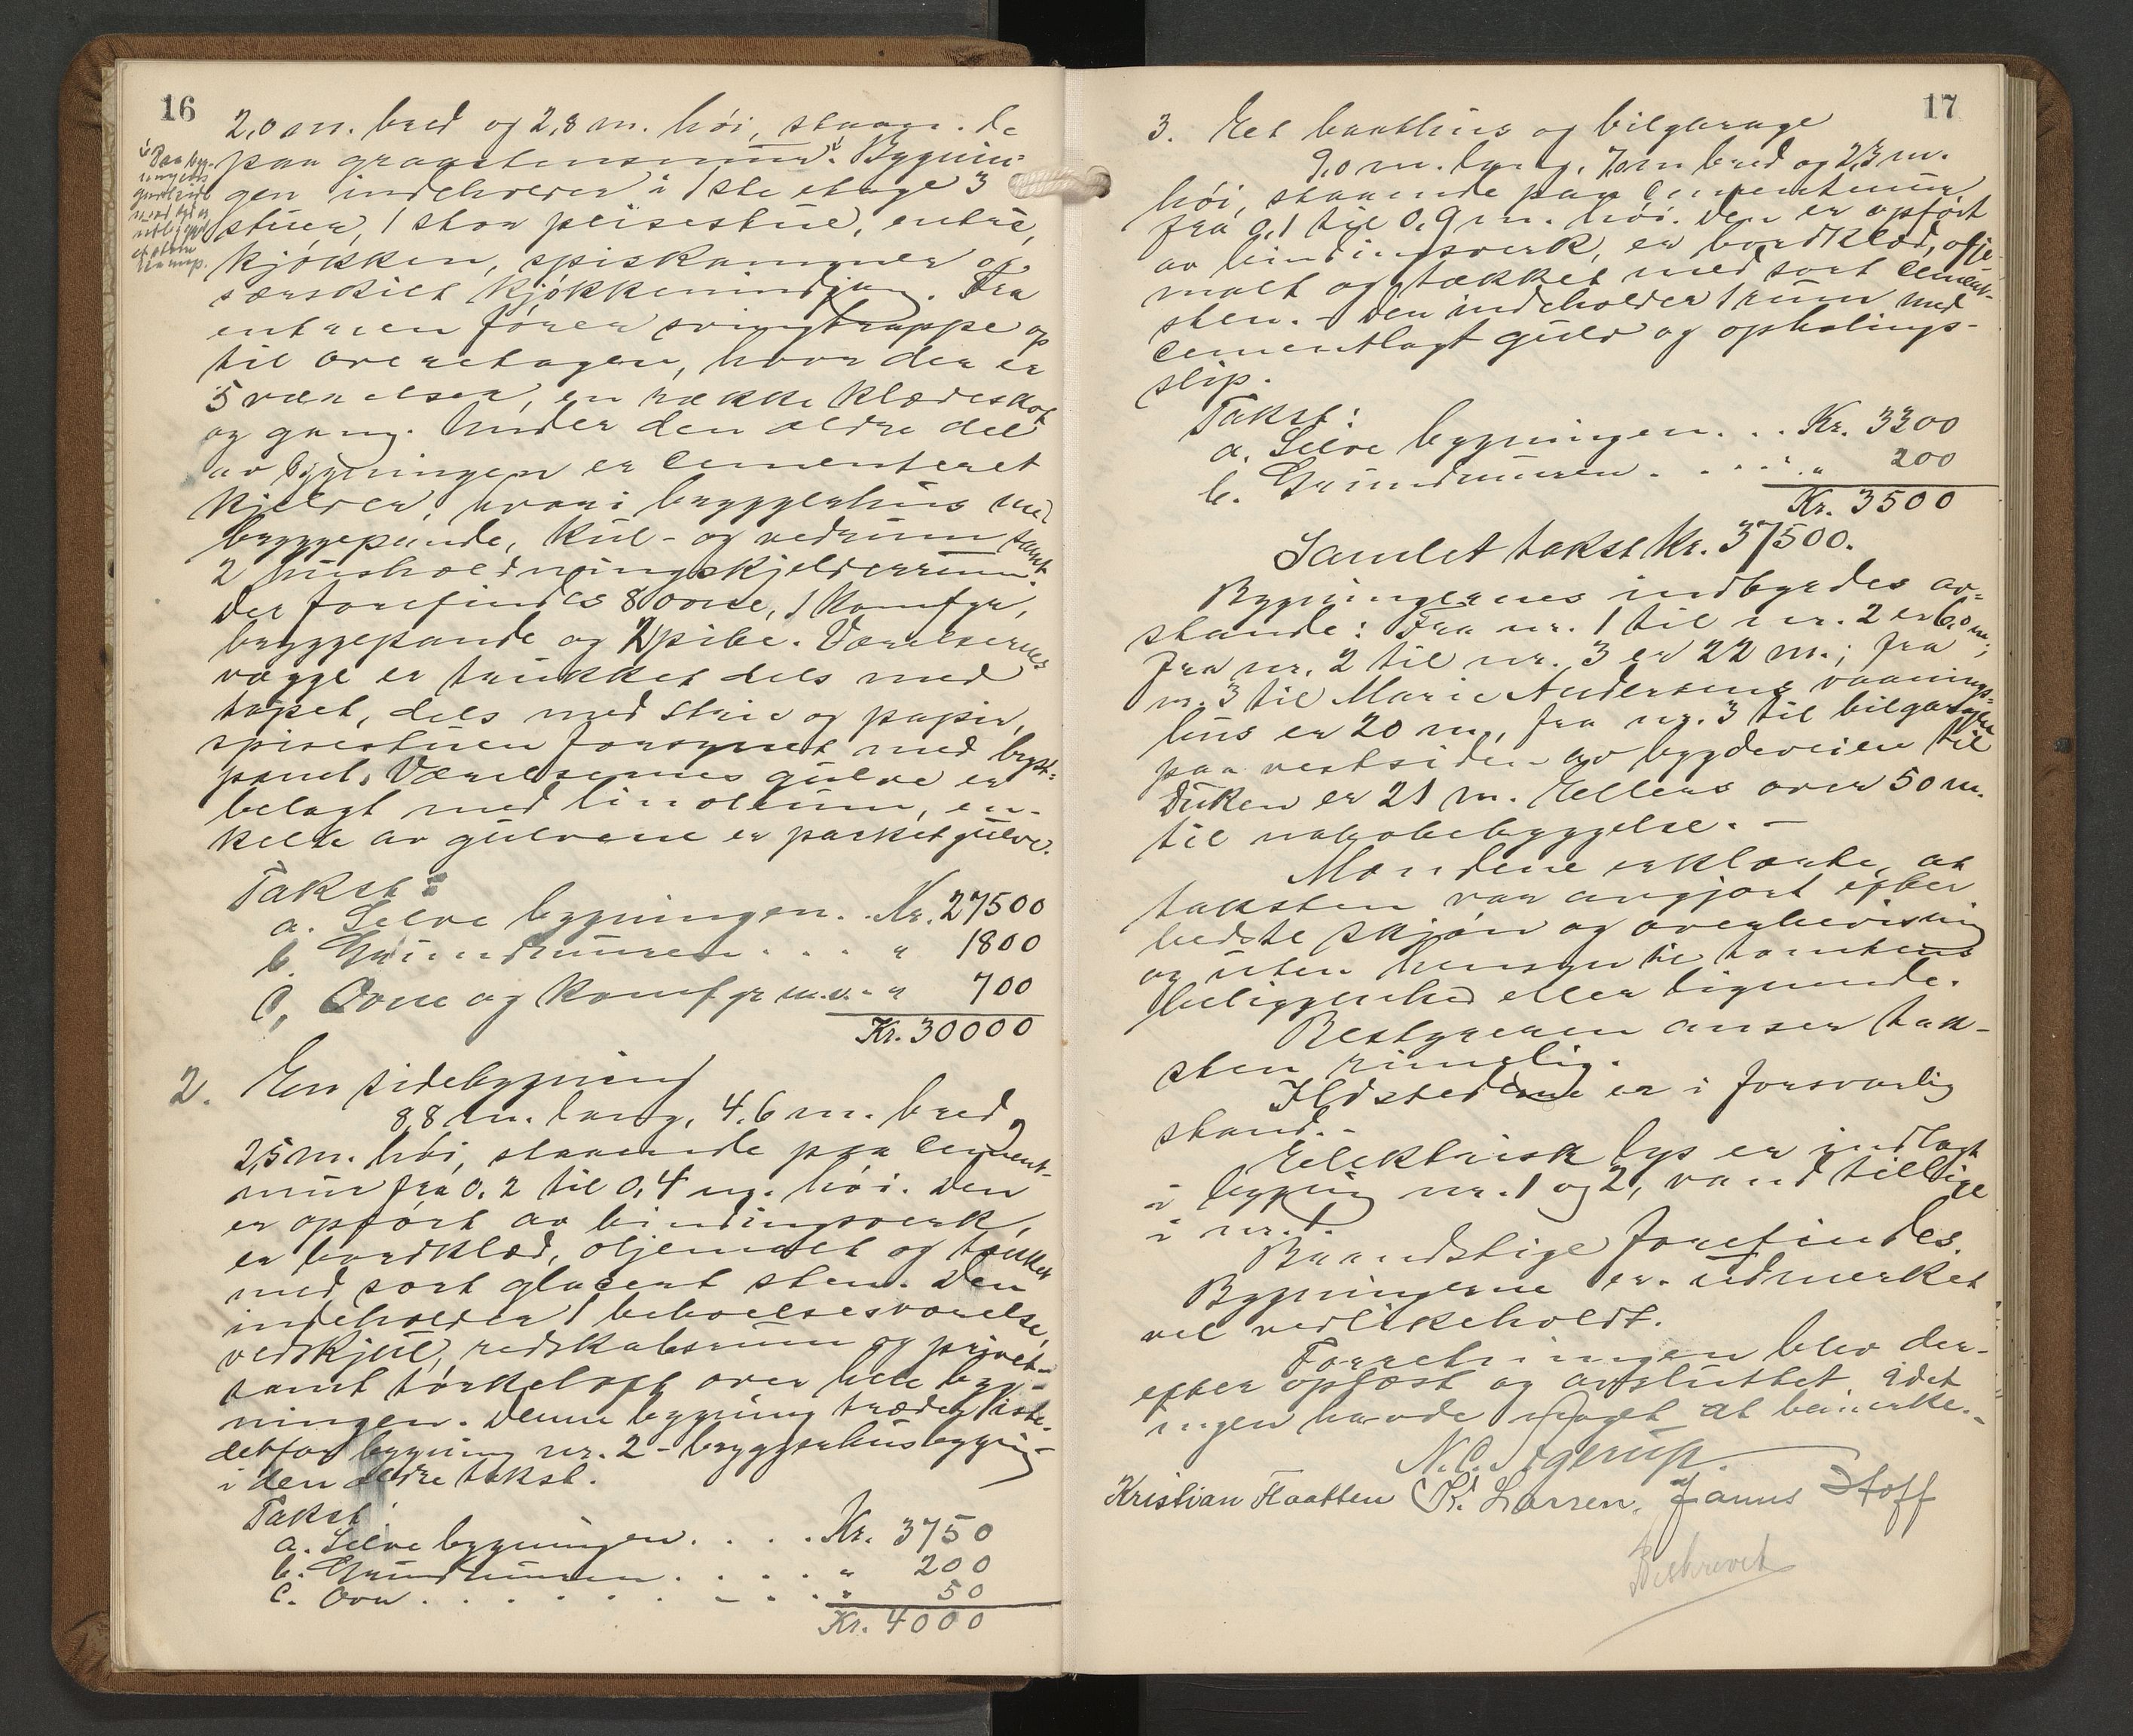 16
2,0 m. bred og 2,8 m. høi, staaende
paa graastensmur. Bygnin-
gen indeholder i 1ste etage 3
stuer, 1 stor peisestue, entré,
kjøkken, spiskammer og
særskilt kjøkkenindgang. Fra
entreen fører svingtrappe op
til overetagen, hvor der er
5 værelser, en række klædeskot
og gang. Under den ældre del
av bygningen er cementeret
kjelder, hvori bryggerhus med
bryggepande, kul- og vedrum samt
2 husholdningskjelderrum.
Der forefindes 8 ovne, 1 komfyr,
bryggepande og 2 pibe. Værelsernes
vægge er trukket dels med
tapet, dels med strie og papir,
spisestuen forsynet med bryst-
panel. Værelsernes gulve er
belagt med linoleum, en-
kelte av gulvene er parketgulve.
Takst:
a. Selve bygningen . . Kr. 27500
b. Grundmuren . . . " 1800
c. Ovne og komfyr m.v. - " 700
Kr. 30000
2. En sidebygning
8,8 m. lang, 4,6 m. bred,
2,5 m. høi, staaende paa cement-
mur fra 0.2 til 0,4 m. høi. Den
er opført av bindingsverk,
er bordklæd, oljemalt og tækket
med sort glasert sten. Den
indeholder 1 beboelsesværelse,
vedskjul, redskabsrum og privet
samt tørkeloft over hele byg-
ningen. Denne bygning træder iste-
detfor bygning nr. 2 - bryggerhusbygning
i den ældre takst.
Takst:
a. Selve bygningen. . . . Kr. 3750
b. Grundmuren . . . . " 200
c. Ovn . . . . . . . . " 50
Kr. 4000
17
3. Et baathus og bilgarage
9,0 m. lang, 7,0 m bred og 2,3 m.
høi, staaende paa cementmur
fra 0,1 til 0,9 m. høi. Den er opført
av bindingsverk, er bordklæd, olje-
malt og tækket med sort cement-
sten. - Den indeholder 1 rum med
cementlagt gulv og ophalings-
slip.
Takst:
a. Selve bygningen. . . Kr. 3300
b. Grundmuren . . . . " 200
Kr. 3500
Samlet takst kr. 37500.
Bygningernes indbyrdes av-
stande: Fra nr. 1 til nr. 2 er 6,0 m;
fra nr. 2 til nr. 3 er 22 m.; fra
nr. 3 til Marie Andersens vaanings-
hus er 20 m., fra nr. 3 til bilgarage
paa vestsiden av bygdeveien til
Duken er 21 m. Ellers over 50 m.
til nabobebyggelse. -
Mændene erklærte, at
taksten var avgjort efter
bedste skjøn og overbevisning
og uten hensyn til tomtens
beliggenhed eller lignende.
Bestyreren anser tak-
sten rimelig.
Ildstedene er i forsvarlig
stand. -
Elektrisk lys er indlagt
i bygning nr. 1 og 2, vand tillige
i nr. 1.
Brandstige forefindes.
Bygningerne er udmerket
vel vedlikeholdt.
Forretningen blev der-
efter oplæst og avsluttet, idet
ingen havde noget at bemerke. -
Kristian Flaatten K. Larsen, Janus Stoff
Beskrevet